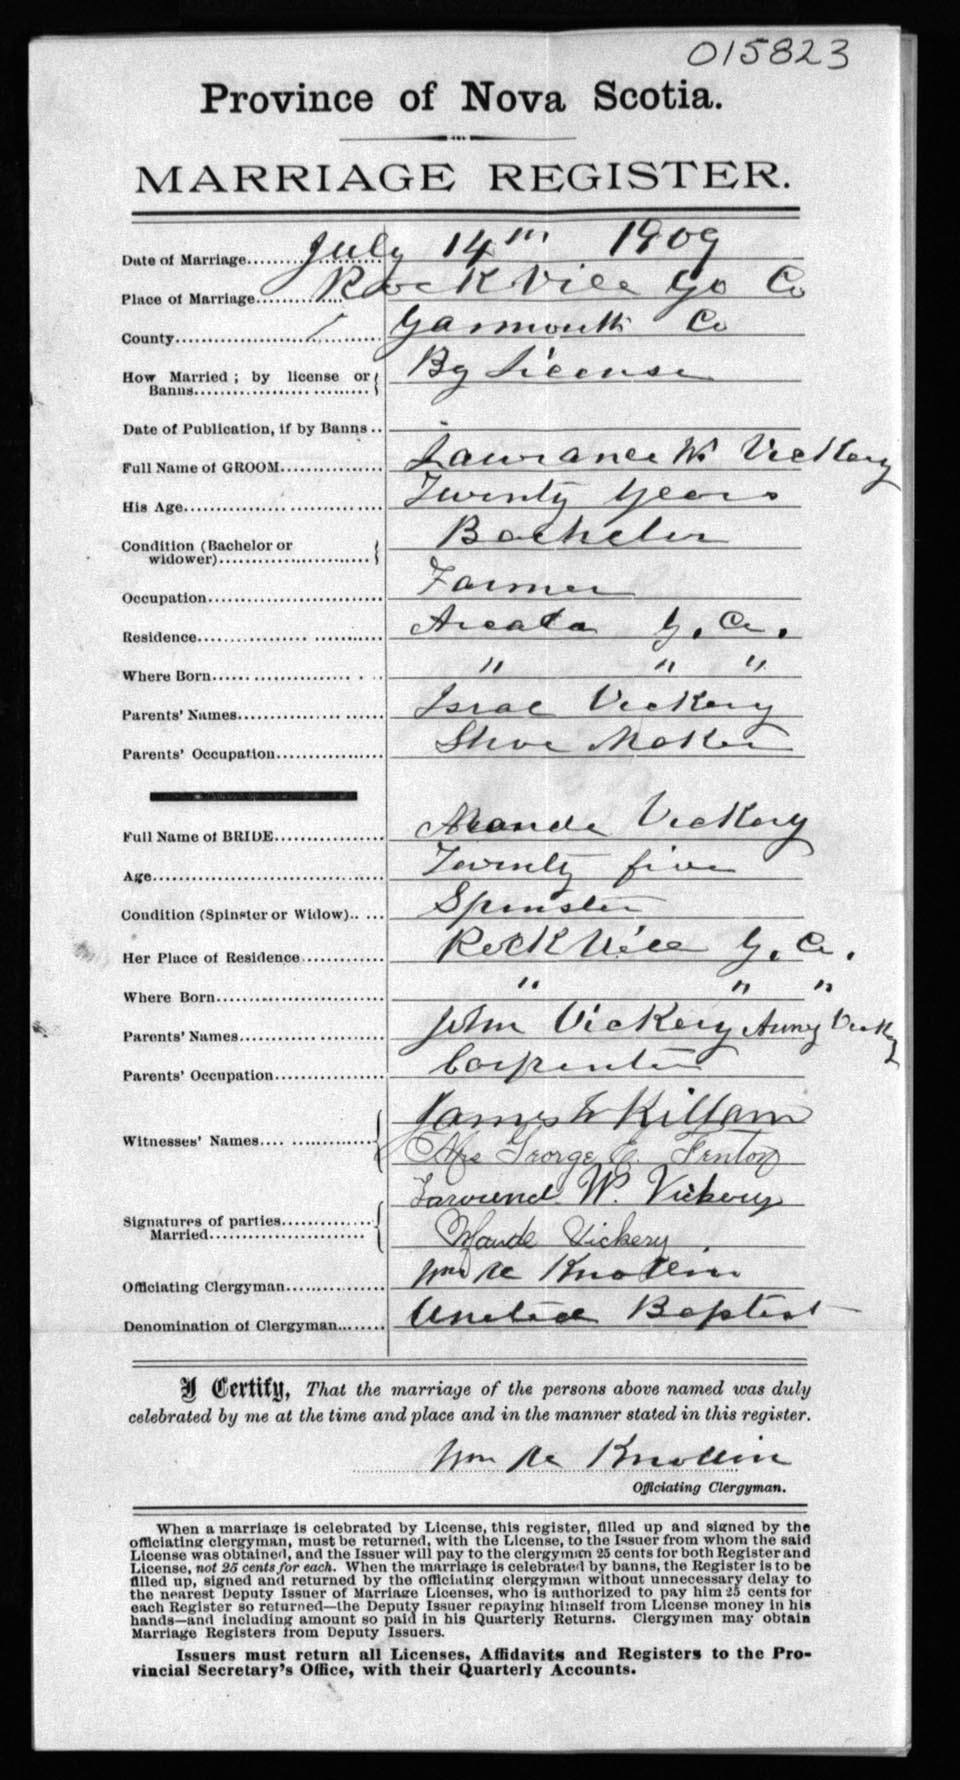 015823
Province of Nova Scotia.
MARRIAGE REGISTER.
Date of Marriage.......... July 14th 1909
Place of Marriage.......... Rockville Yo Co
County.......... Yarmouth Co
How Married; by license or Banns.......... By License
Date of Publication, if by Banns..
Full Name of GROOM.......... Lawrance W Vickery
His Age.......... Twenty Years
Condition (Bachelor or widower).......... Bachelor
Occupation.......... Farmer
Residence.......... Arcada Y. Co.
Where Born.......... " " "
Parents' Names.......... Israe Vickery
Parents' Occupation.......... Shoe Maker
Full Name of BRIDE.......... Maude Vickery
Age.......... Twenty five
Condition (Spinster or Widow)..... Spinster
Her Place of Residence.......... Rockville Y. Co.
Where Born.......... " " "
Parents' Names.......... John Vickery Vickery
Parents' Occupation.......... Carpenter
Witnesses' Names.......... James E Killam
Mrs George E. Fenton
Signatures of parties Married.......... W. Vickery
Maude Vickery
Officiating Clergyman.......... Wm Knollin
Denomination of Clergyman.......... United Baptist
I Certify, That the marriage of the persons above named was duly
celebrated by me at the time and place and in the manner stated in this register.
Wm Knollin
Officiating Clergyman.
When a marriage is celebrated by License, this register, filled up and signed by the
officiating clergyman, must be returned, with the License, to the Issuer from whom the said
License was obtained, and the Issuer will pay to the clergyman 25 cents for both Register and
License, not 25 cents for each. When the marriage is celebrated by banns, the Register is to be
filled up, signed and returned by the officiating clergyman without unnecessary delay to
the nearest Deputy Issuer of Marriage Licenses, who is authorized to pay him 25 cents for
each Register so returned—the Deputy Issuer repaying himself from License money in his
hands—and including amount so paid in his Quarterly Returns. Clergymen may obtain
Marriage Registers from Deputy Issuers.
Issuers must return all Licenses, Affidavits and Registers to the Pro-
vincial Secretary's Office, with their Quarterly Accounts.